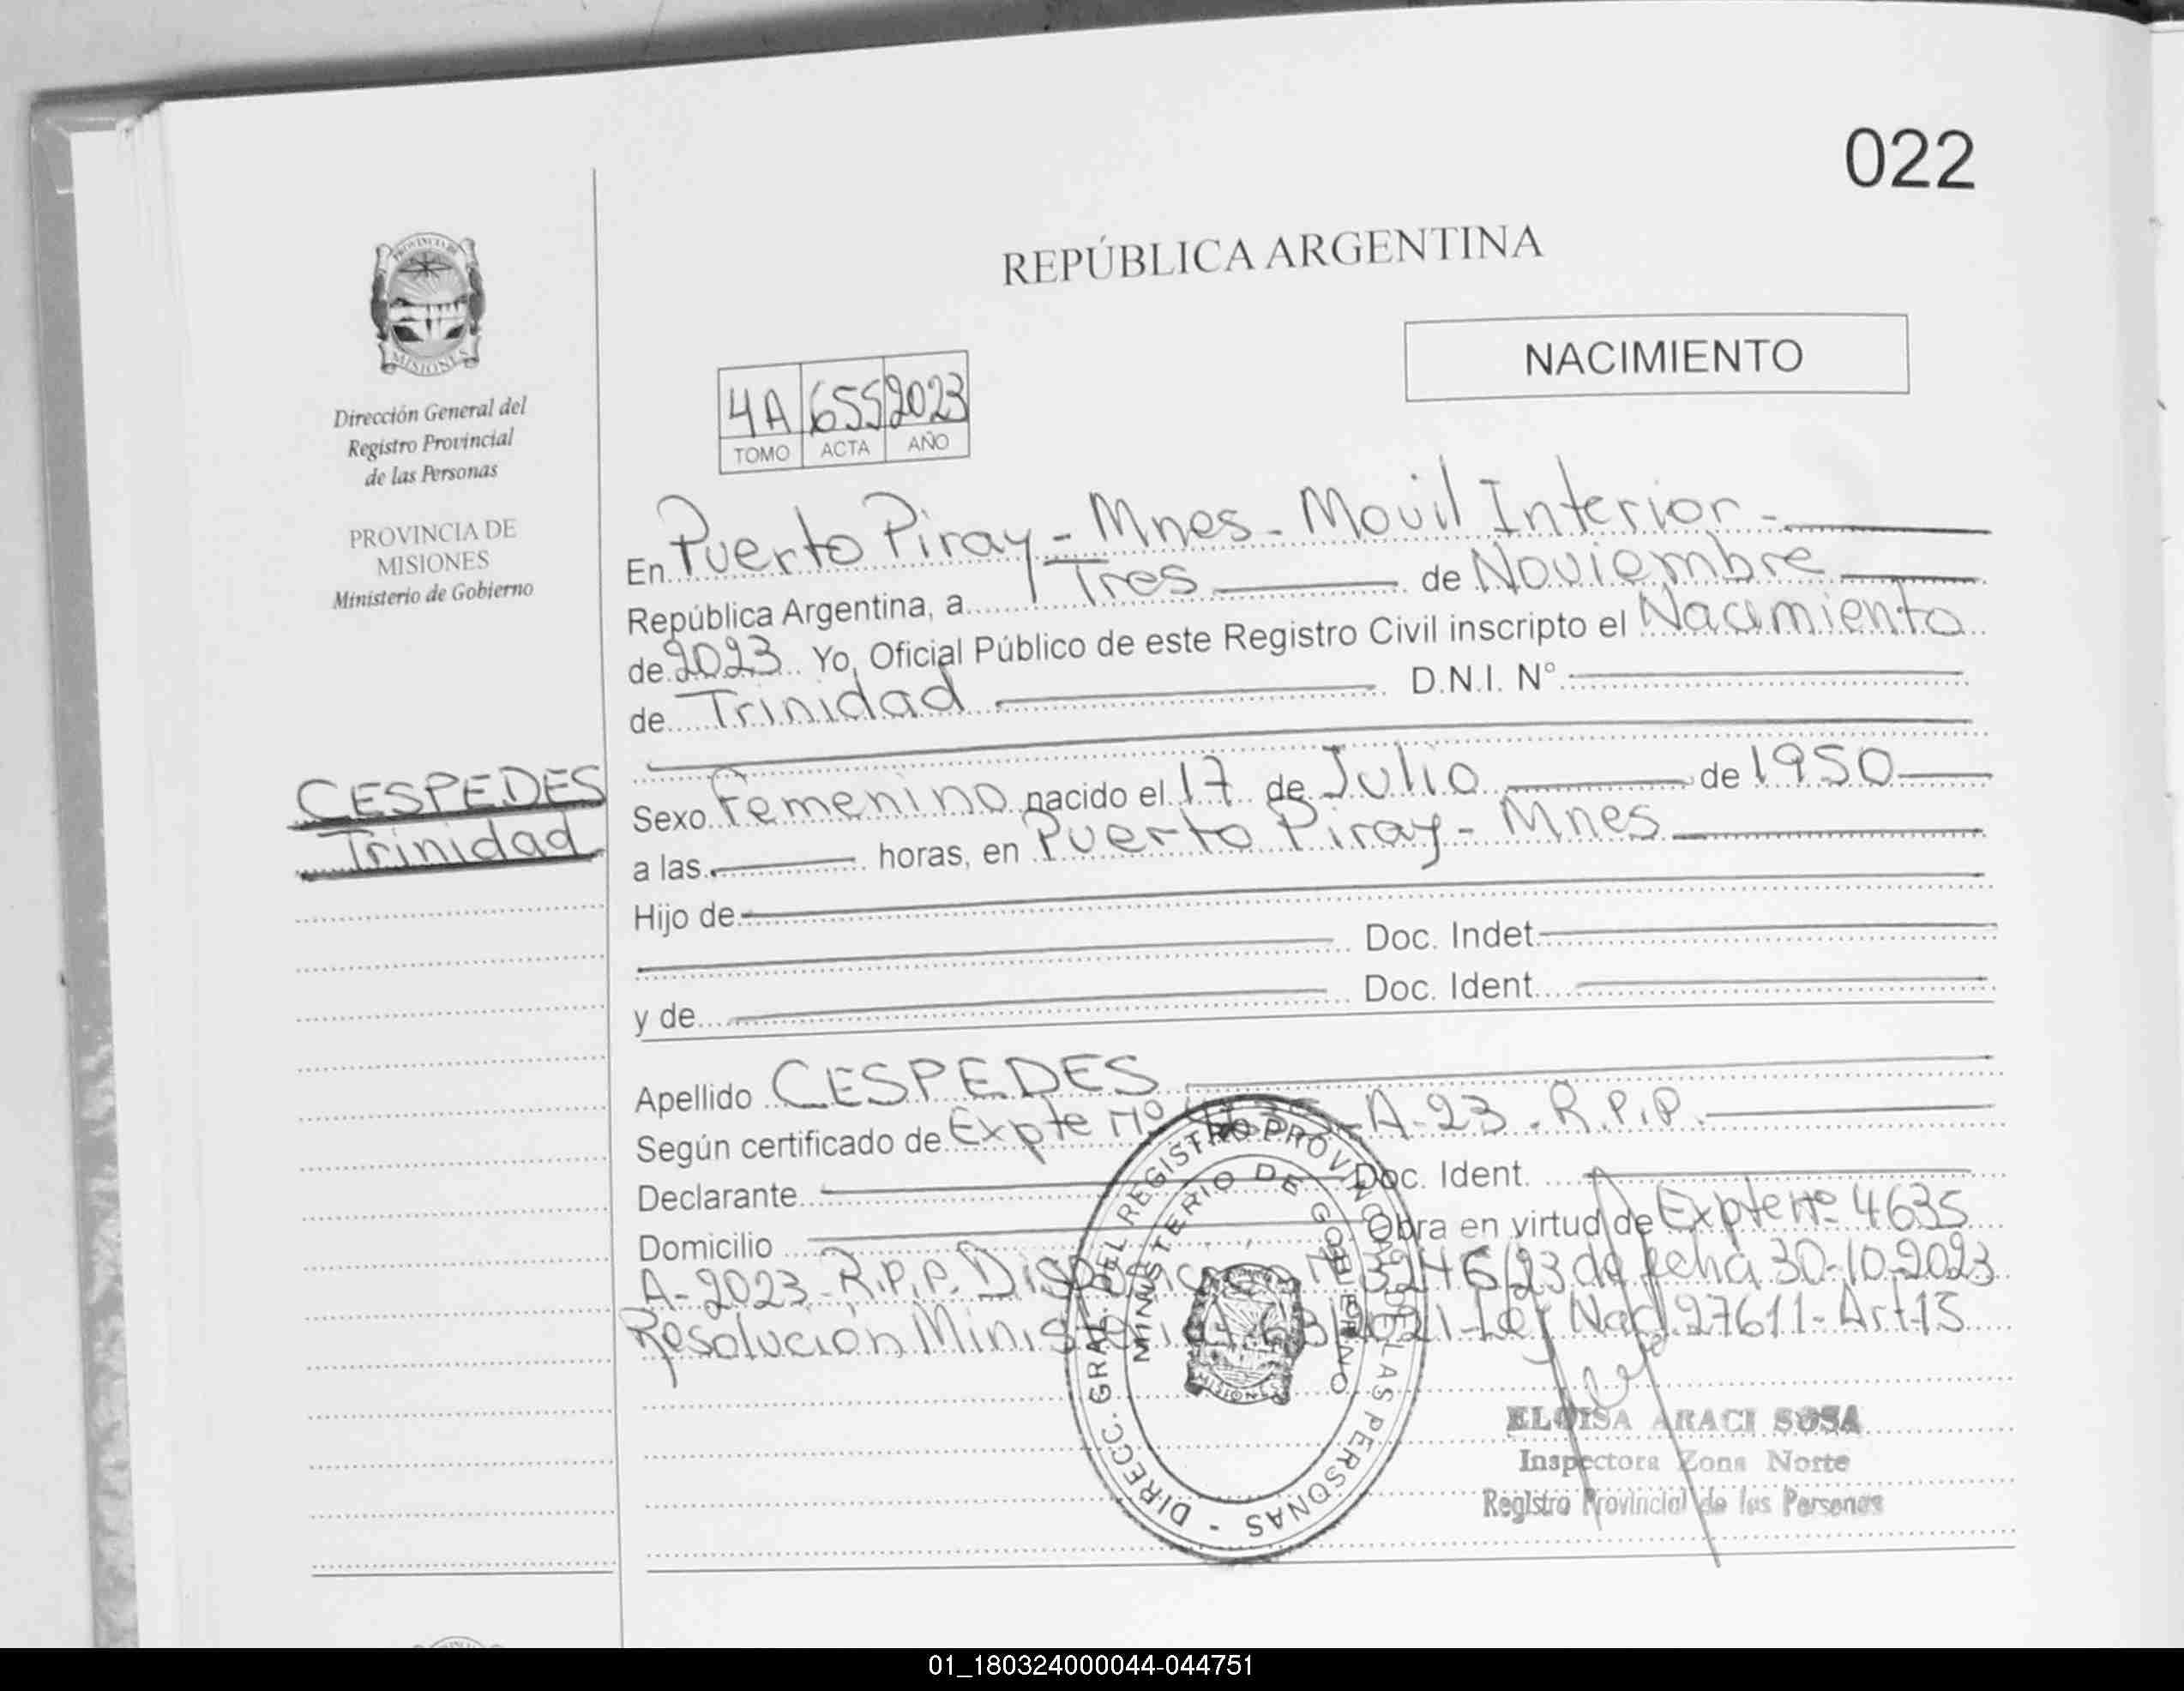 022
PROVINCIA DE
MISIONES
Dirección General del
Registro Provincial
de las Personas
PROVINCIA DE
MISIONES
Ministerio de Gobierno
CESPEDES
Trinidad
REPÚBLICA ARGENTINA
NACIMIENTO
4A 655 2023
TOMO ACTA AÑO
En Puerto Piray - Mnes - Movil Interior -
República Argentina, a Tres de Noviembre
de 2023 Yo, Oficial Público de este Registro Civil inscripto el Nacimiento
de Trinidad D.N.I. N°
Sexo Femenino nacido el 17 de Julio de 1950
a las horas, en Puerto Piray - Mnes
Hijo de
Doc. Indet.
y de Doc. Ident.
Apellido CESPEDES
Según certificado de Expte Nº 4635-A-23. R.P.P.
Declarante Doc. Ident.
Domicilio Obra en virtud de Expte nº 4635
A-2023-R.P.P. Disposición Nº 3246/23 de fecha 30-10-2023
Resolución Ministerial 2021-Ley Nacl. 27611-Art 13
DIRECC. GRAL. DEL REGISTRO PROVINCIAL DE LAS PERSONAS -
MINISTERIO DE GOBIERNO
MISIONES
ELOISA ARACI SOSA
Inspectora Zona Norte
Registro Provincial de las Personas
01_180324000044-044751